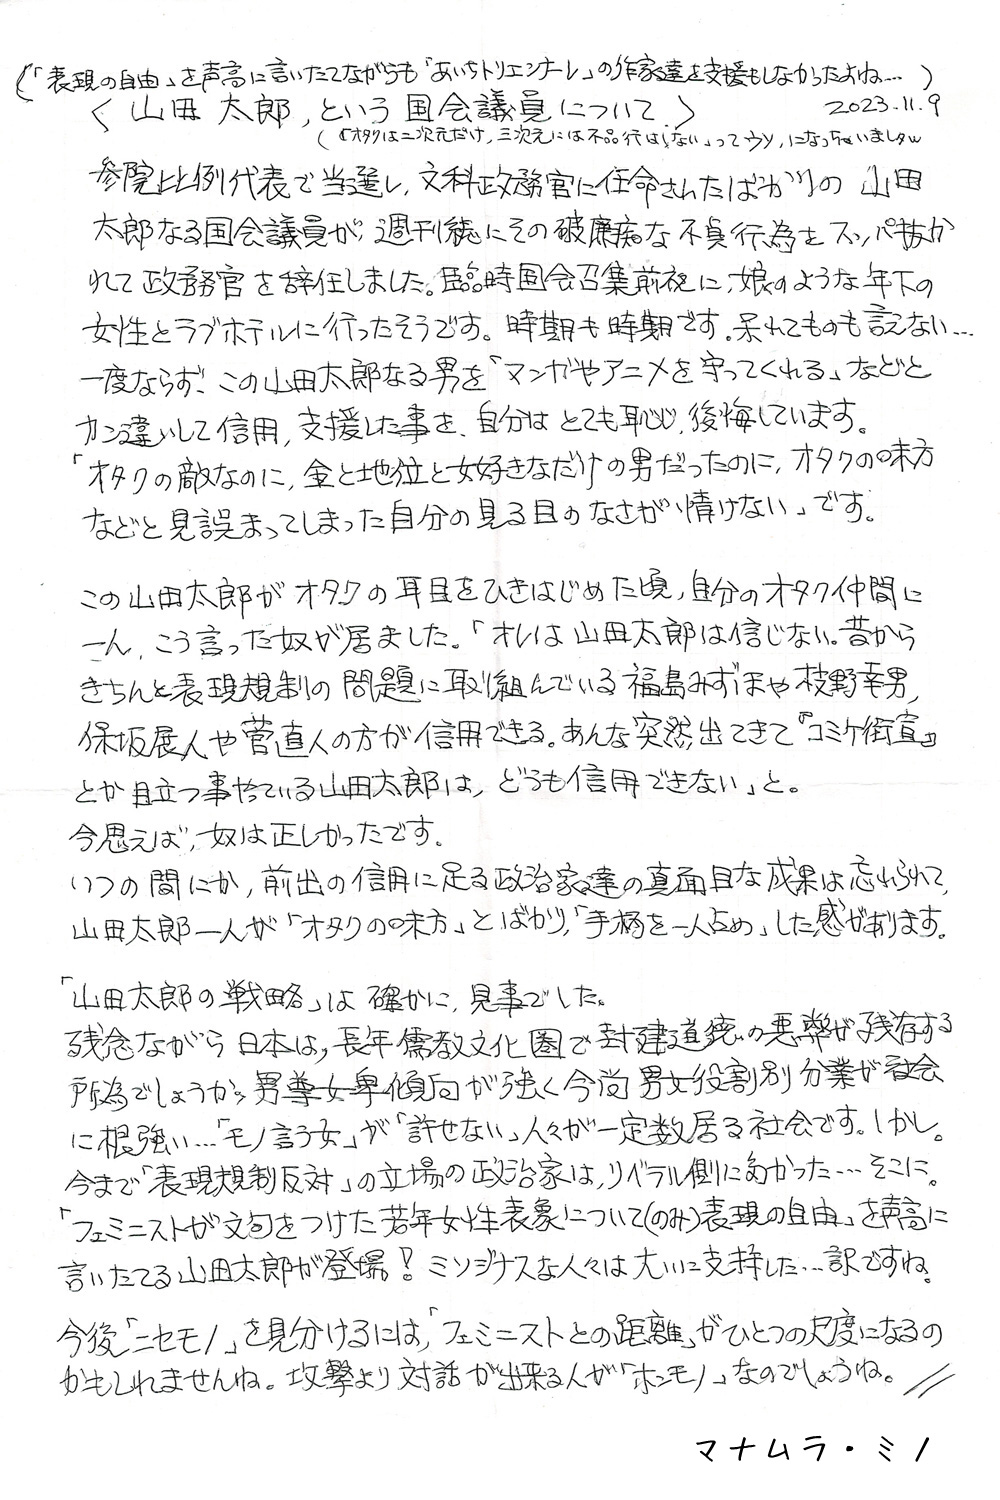 (「表現の自由」を声高に言いたてながらも「あいちトリエンナーレ」の作家達を支援もしなかったよね…)
〈山田太郎,という国会議員について〉 2023.11.9
(「オタクは二次元だけ,三次元には不品行はしない」ってウソ,になっちゃいましたw
参院比例代表で当選し,文科政務官に任命されたばかりの山田
太郎なる国会議員が,週刊誌にその破廉恥な不貞行為をスッパ抜か
れて政務官を辞任しました。臨時国会召集前夜に,娘のような年下の
女性とラブホテルに行ったそうです。時期も時期です.呆れてものも言えない…
一度ならず,この山田太郎なる男を「マンガやアニメを守ってくれる」などと
カン違いして信用,支援した事を,自分はとても恥じ,後悔しています。
「オタクの敵なのに,金と地位と女好きなだけの男だったのに,オタクの味方
などと見誤まってしまった自分の見る目のなさが,情けない」です。
この山田太郎がオタクの耳目をひきはじめた頃,自分のオタク仲間に
一人,こう言った奴が居ました。「オレは山田太郎は信じない。昔から
きちんと表現規制の問題に取り組んでいる福島みずほや枝野幸男,
保坂展人や菅直人の方が信用できる。あんな突然出てきて『コミケ街宣』
とか目立つ事やっている山田太郎は,どうも信用できない」と。
今思えば,奴は正しかったです。
いつの間にか,前出の信用に足る政治家達の真面目な成果は忘れられて,
山田太郎一人が「オタクの味方」とばかり,「手柄を一人占め」した感があります。
「山田太郎の戦略」は確かに,見事でした。
残念ながら日本は,長年儒教文化圏で封建道徳の悪弊が残存する
所為でしょうか,男尊女卑傾向が強く今尚男女役割別分業が社会
に根強い…「モノ言う女」が「許せない」人々が一定数居る社会です。しかし。
今まで「表現規制反対」の立場の政治家は,リベラル側に多かった…そこに。
「フェミニストが文句をつけた若年女性表象について(のみ)表現の自由」を声高に
言いたてる山田太郎が登場!ミソジナスな人々は大いに支持した…訳ですね。
今後「ニセモノ」を見分けるには,「フェミニストとの距離」がひとつの尺度になるの
かもしれませんね。攻撃より対話が出来る人が「ホンモノ」なのでしょうね。//
マナムラ・ミノ